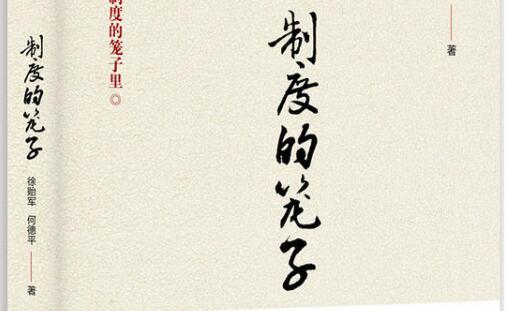 制度的笼子
徐贻军 何德平
著
制度的笼子里◎
制度的笼子
著